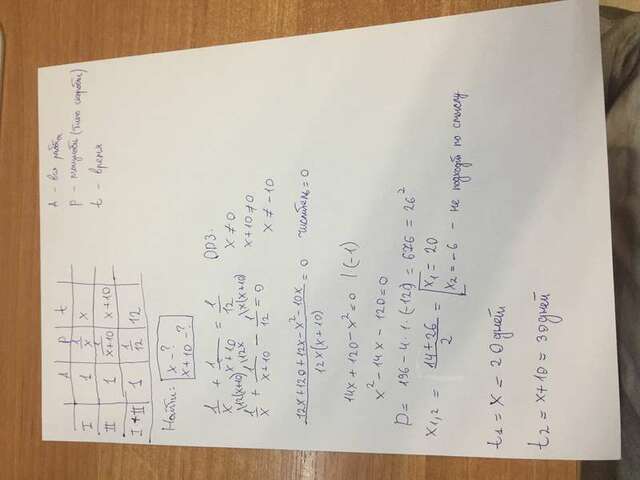 A P t
I 1 1/x x
II 1 1/x+10 x+10
I+II 1 1/12 12
A - вся работа
P - мощность (типо скорость)
t - время
Найти: x - ?
x+10 - ?
1/x + 1/x+10 = 1/12
ОДЗ.
x ≠ 0
x+10 ≠ 0
x ≠ -10
1/x \12(x+10) + 1/x+10 \12x - 1/12 \x(x+10) = 0
12x+120+12x-x²-10x / 12x(x+10) = 0 числитель = 0
14x+120-x² = 0 | (-1)
x² - 14x - 120 = 0
D = 196 - 4 · 1 · (-120) = 676 = 26²
x1,2 = 14±26 / 2 = [ x1 = 20
x2 = -6 - не подходит по смыслу
t1 = x = 20 дней
t2 = x+10 = 30 дней